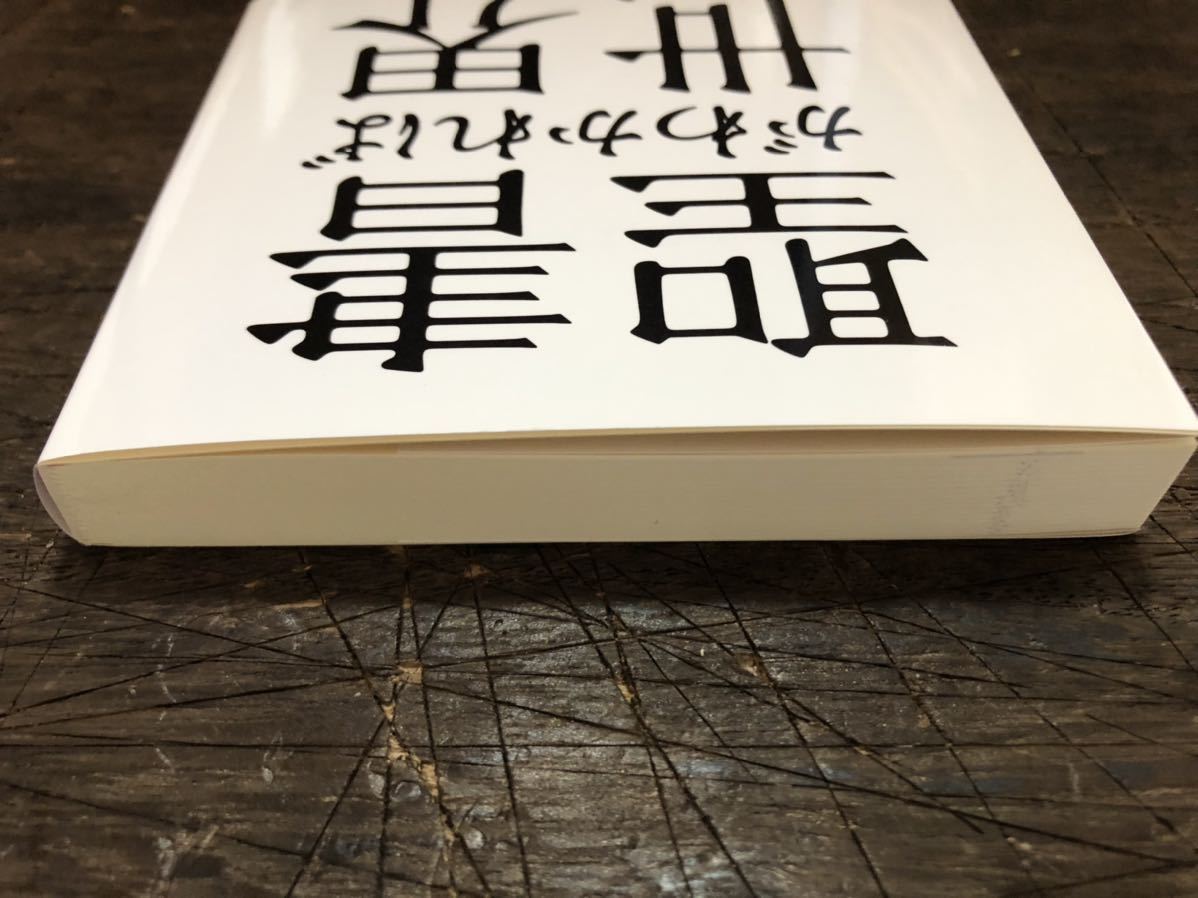 聖書
がわかれば
世界